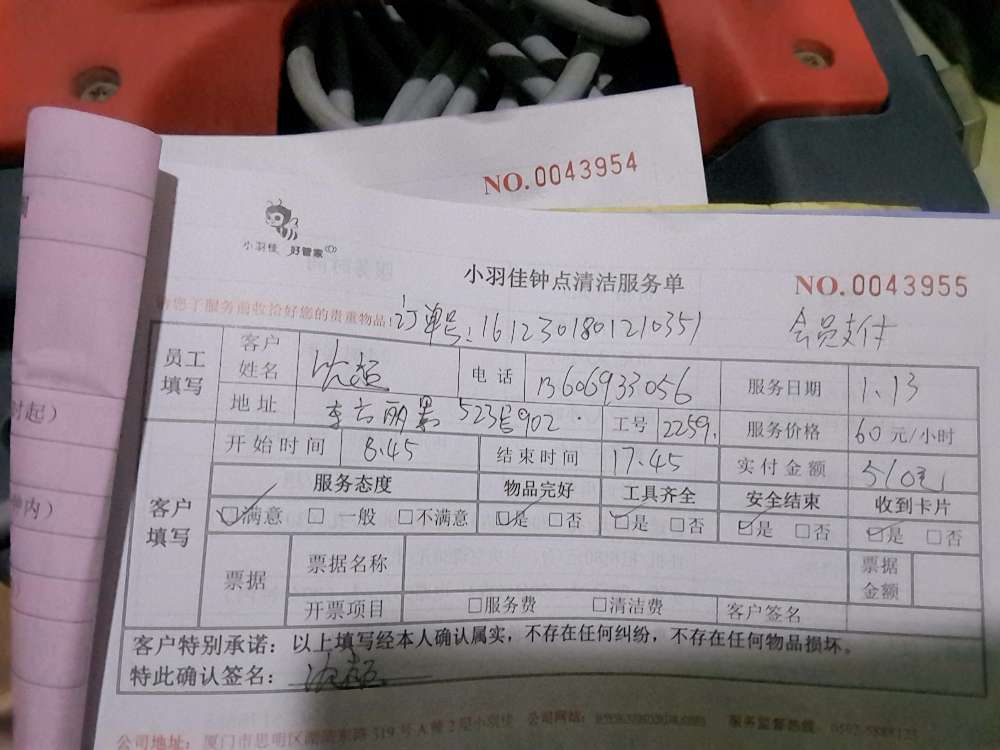 NO.0043954
小羽佳 好管家
小羽佳钟点清洁服务单
NO.0043955
您于服务前收拾好您的贵重物品!
订单号:1612301801210351
会员支付
员工填写 客户姓名 电话 13606933056 服务日期 1.13
地址 523号902 工号 2259 服务价格 60元/小时
客户填写 开始时间 8.45 结束时间 17.45 实付金额 510元
服务态度 物品完好 工具齐全 安全结束 收到卡片
☑满意 □一般 □不满意 ☑是 □否 ☑是 □否 ☑是 □否 ☑是 □否
票据 票据名称 票据金额
开票项目 □服务费 □清洁费 客户签名
客户特别承诺:以上填写经本人确认属实,不存在任何纠纷,不存在任何物品损坏。
特此确认签名:
公司地址:厦门市思明区 319号A幢2层小羽佳 公司网络: 服务监督热线:
时起)
内)